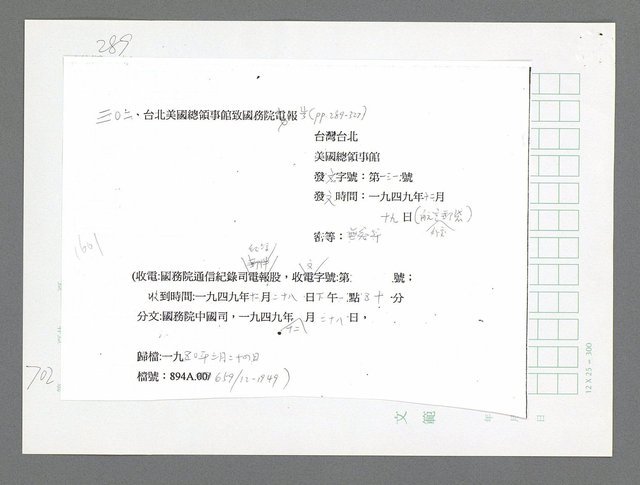 289
三○六、台北美國總領事館致國務院電報 (pp.289-327)
台灣台北
美國總領事館
發文字號：第一三一號
發文時間：一九四九年十二月
十九日(航空郵袋)
密等：
1601
(收電:國務院通信紀錄司電報股，收電字號:第 號；
收到時間:一九四九年十二月二十八日下午一點 十分
分文:國務院中國司，一九四九年十二月二十八日，
歸檔:一九五0年三月二十四日
702
檔號：894A.00/659/12-1949)
12 X 25 = 300
文範 年 月 日